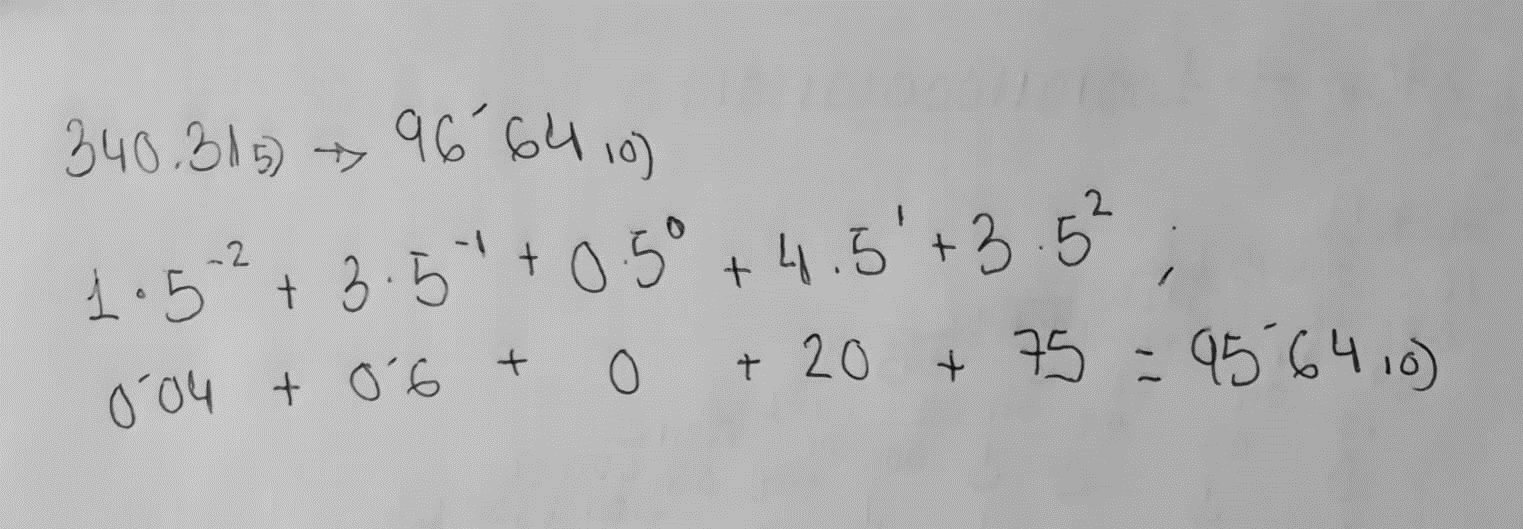 340.31₅₎ → 96´64₁₀₎
1·5⁻² + 3·5⁻¹ + 0·5⁰ + 4·5¹ + 3·5² ;
0´04 + 0´6 + 0 + 20 + 75 = 95´64₁₀₎